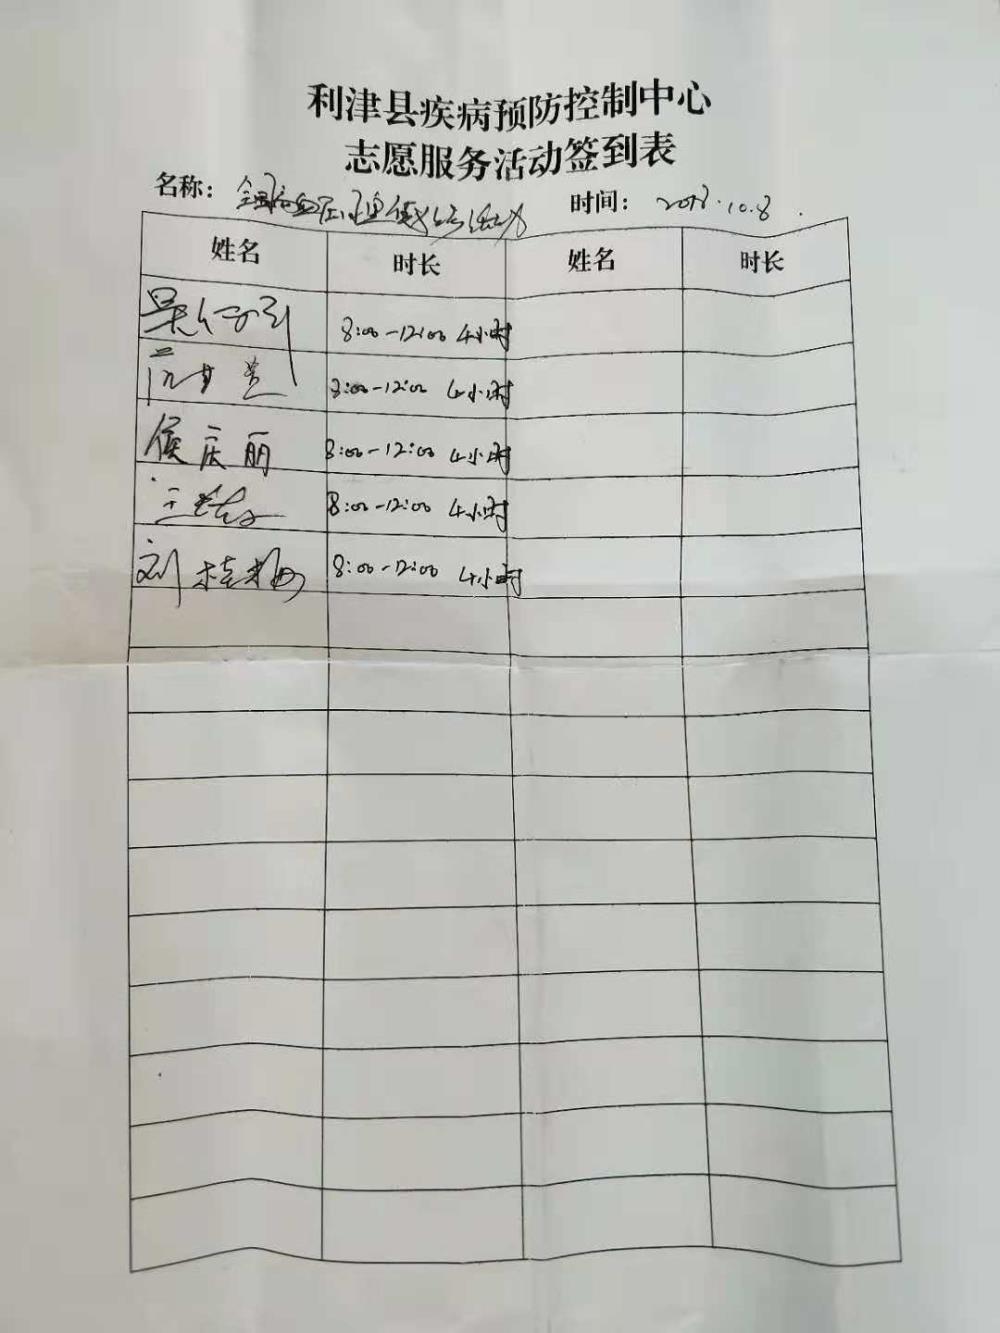 利津县疾病预防控制中心
志愿服务活动签到表
名称：全国高血压日宣传义诊活动 时间：2018.10.8.
姓名 时长 姓名 时长
8:00-12:00 4小时
8:00-12:00 4小时
侯庆丽 8:00-12:00 4小时
8:00-12:00 4小时
刘桂梅 8:00-12:00 4小时